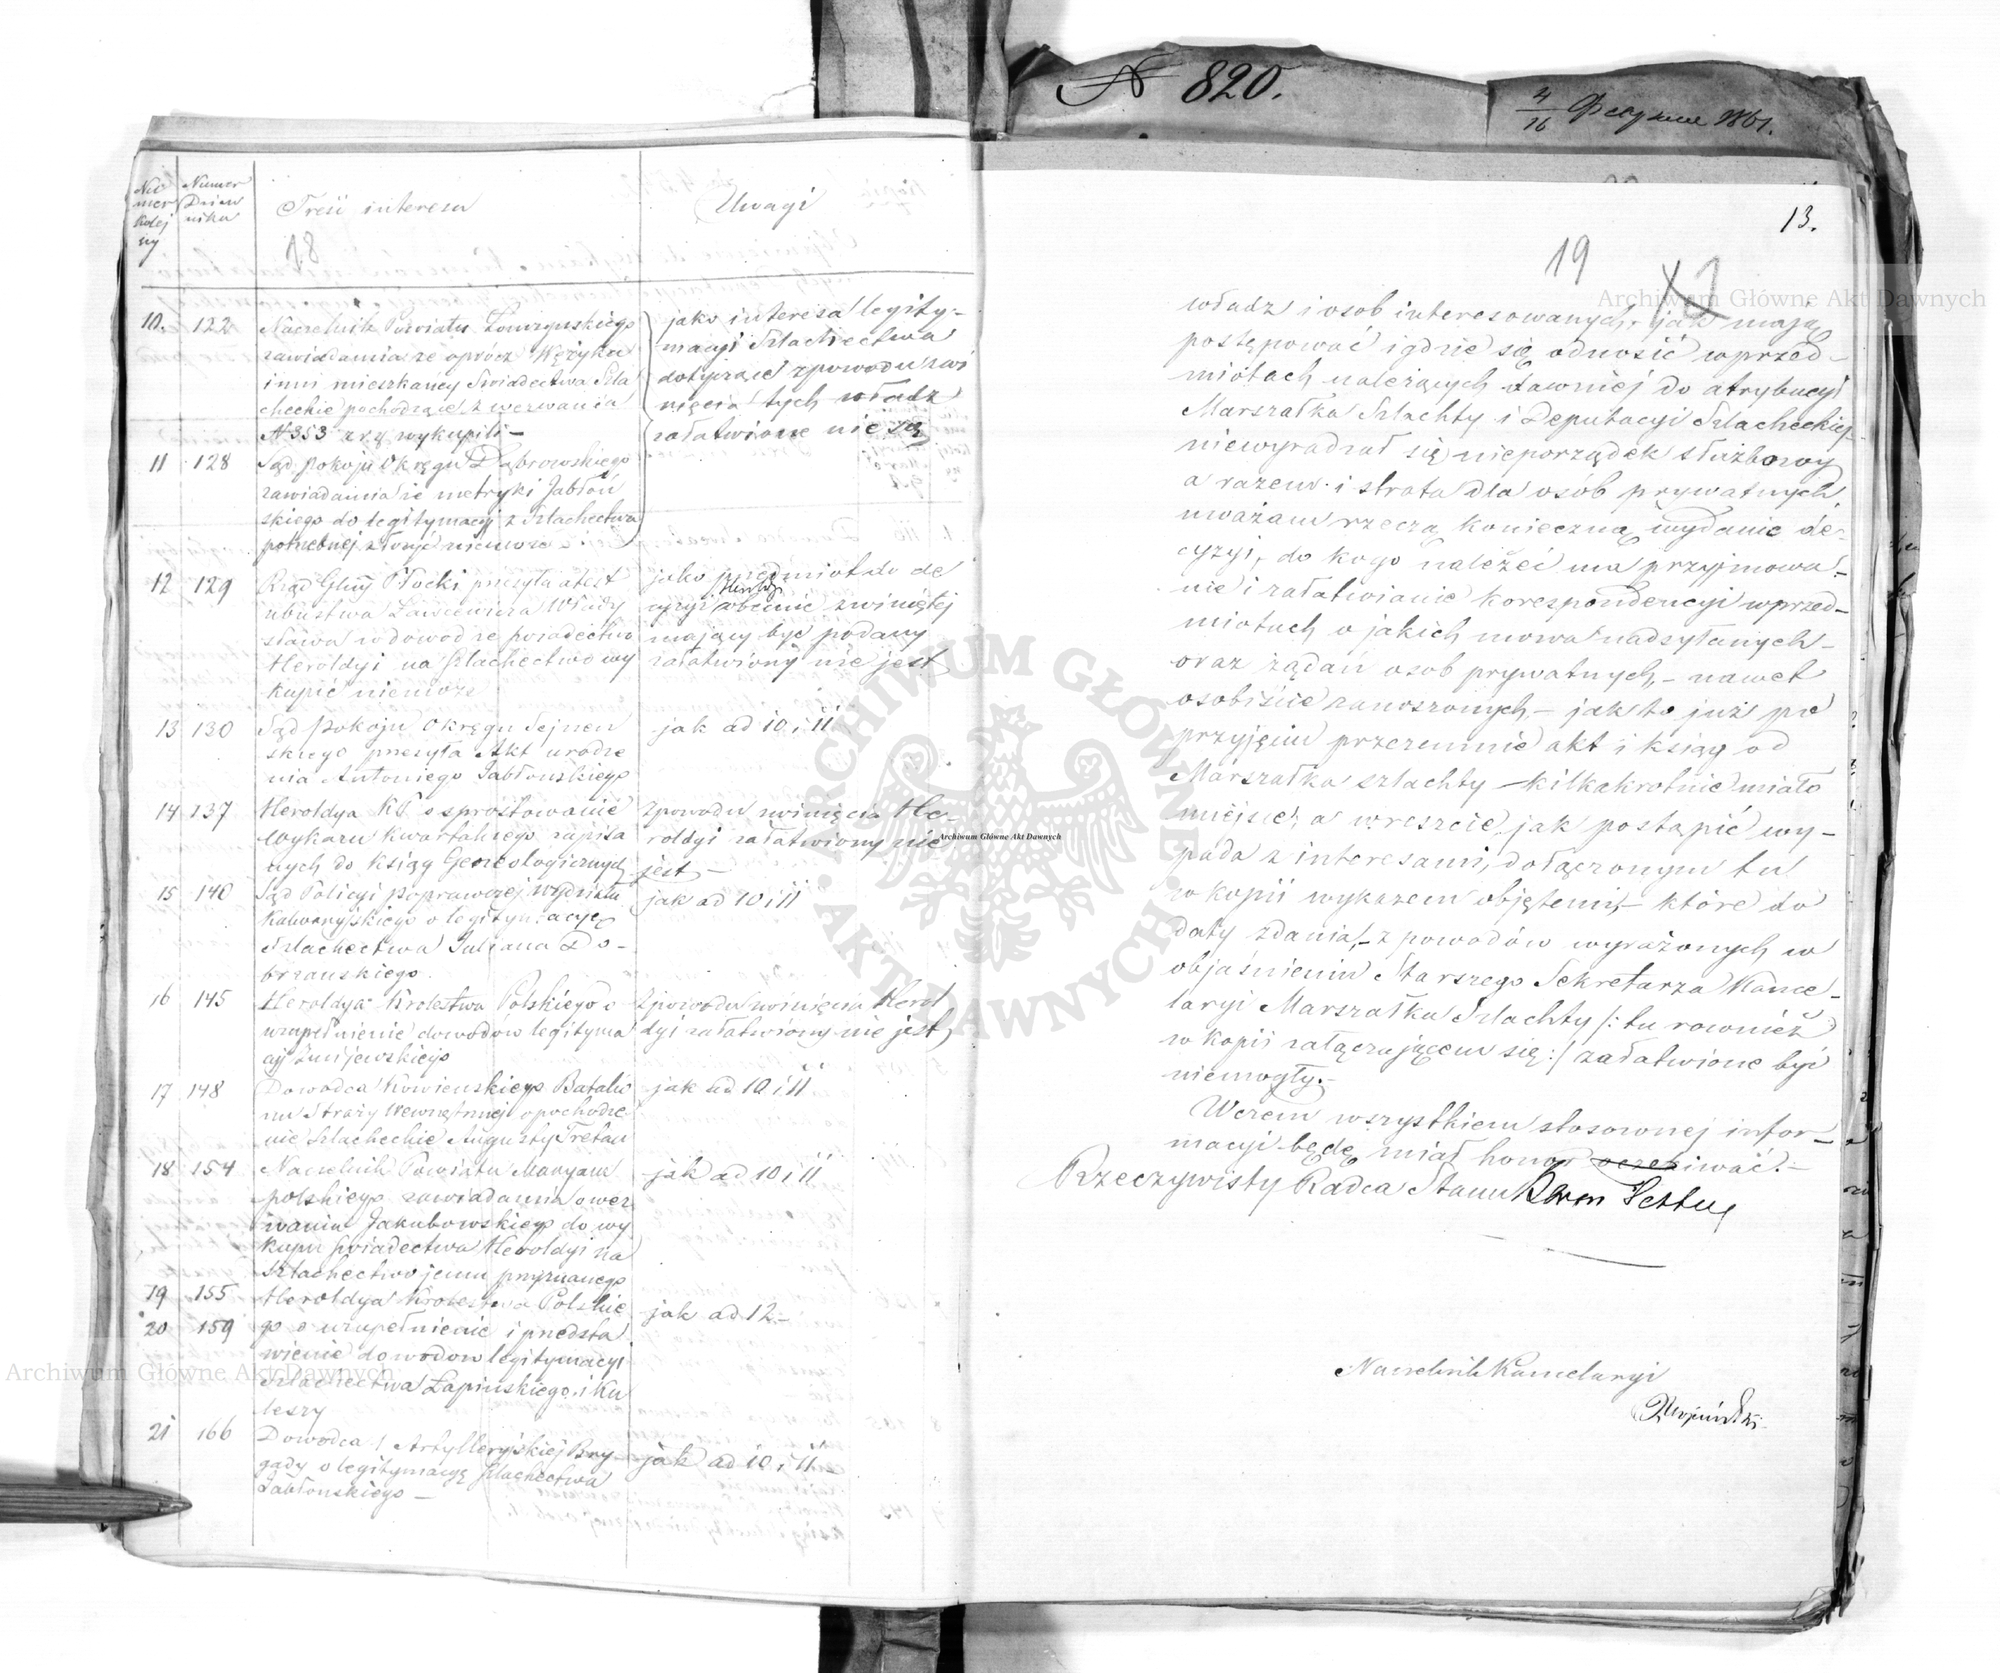 N 820.
4/16 1861.
Nu
mer
kolej
ny
Numer
Dzien
nika
Treść interesu
Uwagi
18
10. 122 Naczelnik Powiatu Łomżyńskiego
zawiadamia że oprócz Wężyka
inni mieszkańcy Świadectwa Szla
checkie pochodzące z wezwania
N 353 wykupili –
jako interesa legity-
macyi Szlachectwa
dotyczące z powodu zwi
nięcia tych władz
załatwione nie są
11 128 Sąd Pokoju Okręgu Dąbrowskiego
zawiadamia że metryki Jabłoń
skiego do legitymacyi z Szlachectwa
potrzebnej złożyć niemoże
12 129 Rząd Glny Płocki przesyła atest
ubóstwa Włady
sława w dowód że świadectwa
Heroldyi na Szlachectwo wy
kupić niemoże
jako przedmiot do de
cyzyi Heroldyi obecnie zwiniętej
mający być podany
załatwiony nie jest
13 130 Sąd Pokoju Okręgu Sejneń
skiego przesyła Akt urodze
nia Antoniego Jabłońskiego
jak ad 10 i 11
14 137 Heroldya KP o sprostowanie
Wykazu kwartalnego zapisa
nych do ksiąg Genealogicznych
Z powodu zwinięcia He-
roldyi załatwiony nie
jest –
15 140 Sąd Policyi Poprawczej Wydziału
Kalwaryjskiego o legitymacyę
Szlachectwa Juliana Do-
brzańskiego.
jak ad 10 i 11
16 145 Heroldya Królestwa Polskiego o
uzupełnienie dowodów legityma
cyi Żmijewskiego
Z powodu zwinięcia Herol
dyi załatwiony nie jest
17 148 Dowódca Kowieńskiego Batalio
nu Straży Wewnętrznej o pochodze
nie Szlacheckie Augusty Tretau
jak ad 10 i 11
18 154 Naczelnik Powiatu Maryam
polskiego zawiadamia o wez
waniu Jakubowskiego do wy
kupu świadectwa Heroldyi na
Szlachectwo jemu przyznanego
jak ad 10 i 11
19 155 Heroldya Królestwa Polskie
20 159 go o uzupełnienie i przedsta
wienie dowodów legitymacyi
Szlachectwa Łapińskiego i Ku
leszy
jak ad 12 –
21 166 Dowódca 1 Artylleryjskiej Bry
gady o legitymacyę Szlachectwa
Jabłońskiego –
jak ad 10 i 11
13.
19
władz i osób interesowanych, jak mają
postępować i gdzie się odnosić w przed-
miotach należących dawniej do atrybucyi
Marszałka Szlachty i Deputacyi Szlacheckiej,
niewyradzał się nieporządek służbowy
a razem i strata dla osób prywatnych,
uważam rzeczą konieczną wydanie de-
cyzyi, do kogo należeć ma przyjmowa-
nie i załatwianie korespondencyi w przed-
miotach o jakich mowa nadsyłanych –
oraz żądań osób prywatnych, – nawet
osobiście zanoszonych – jak to już po
przyjęciu przezemnie akt i ksiąg od
Marszałka szlachty – kilkakrotnie miało
miejsce; a wreszcie, jak postąpić wy-
pada z interesami, dołączonym tu
w kopii wykazem objętemi, – które do
daty zdania, – z powodów wyrażonych w
objaśnieniu Starszego Sekretarza Kance-
laryi Marszałka Szlachty /: tu również
w kopii załączającem się :/ załatwione być
niemogły. –
Wczem wszystkiem stosownej infor-
macyi będę miał honor oczekiwać. –
Rzeczywisty Radca Stanu
Naczelnik Kancelaryi
Archiwum Główne Akt Dawnych
Archiwum Główne Akt Dawnych
Archiwum Główne Akt Dawnych
ARCHIWUM GŁÓWNE AKT DAWNYCH